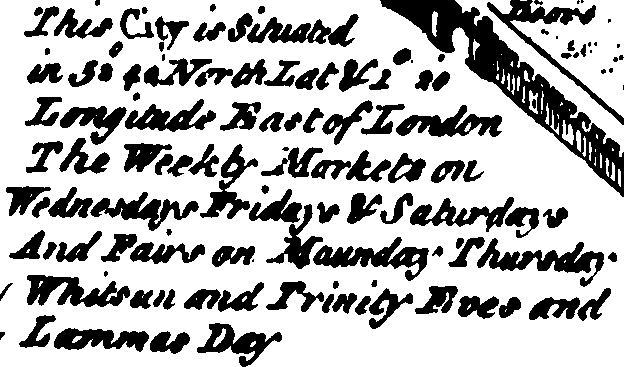 This City is Situated
in 52° 42' North Lat & 1° 20
Longitude East of London
The Weekly Markets on
Wednesdays Fridays & Saturdays
And Fairs on Maunday Thursday
Whitsun and Trinity Eves and
Lammas Day